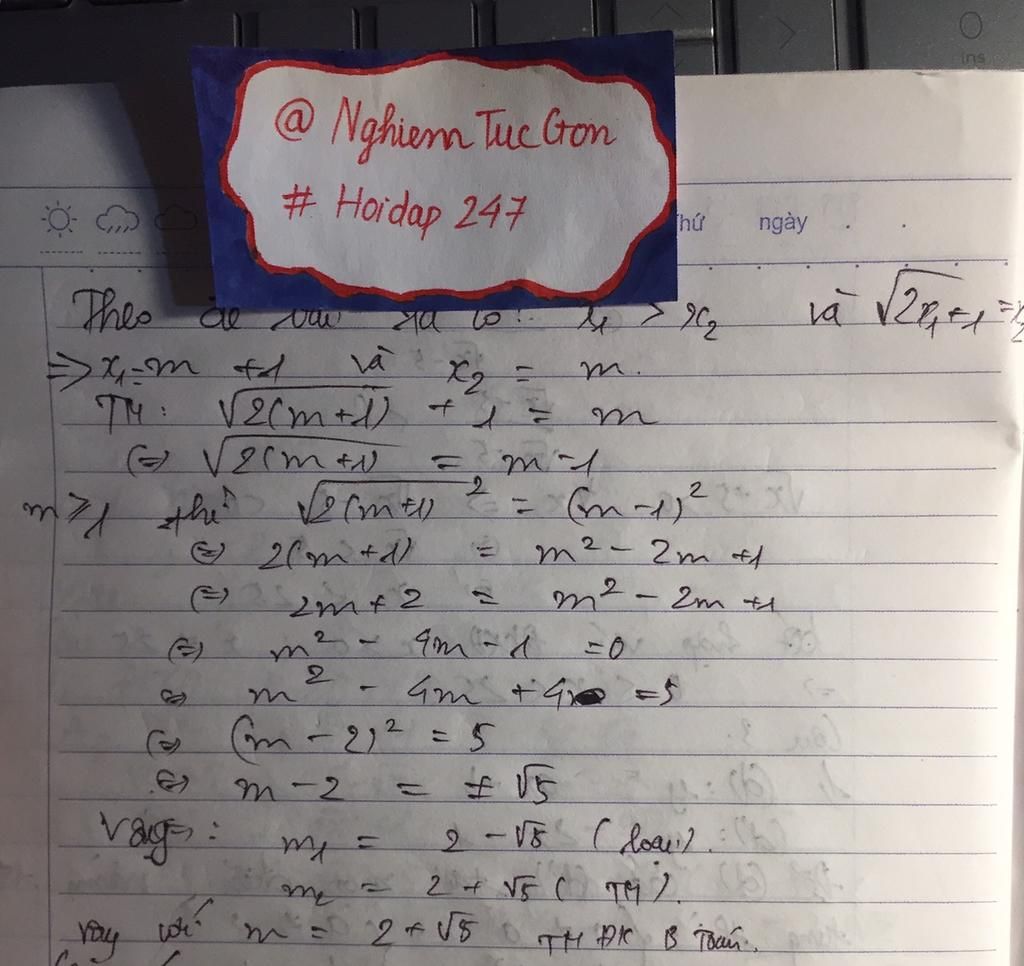 ins
@ NghiemTucGon
# Hoidap 247
hứ ngày
Theo x₁ > x₂ và √2x₁+1 =
=> x₁=m +1 và x₂ = m.
TH: √2(m+1) + 1 = m
(=) √2(m+1) = m-1
m ≥ 1 thì √2(m+1)² = (m-1)²
(=) 2(m+1) = m² - 2m +1
(=) 2m+2 = m² - 2m +1
(=) m² - 4m - 1 =0
(=) m² - 4m + 4 =5
(=) (m - 2)² = 5
(=) m - 2 = ± √5
m₁ = 2 - √5 (loại).
m₂ = 2 + √5 (TM).
vậy với m = 2 + √5 TM ĐK B Toán.